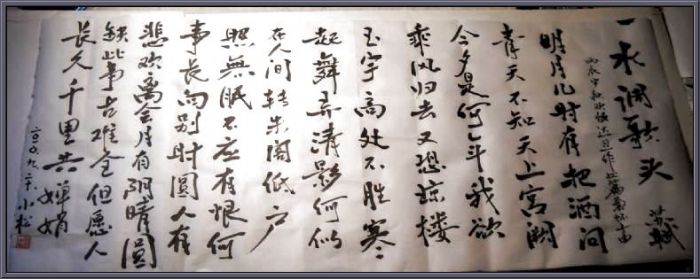 水调歌头 苏轼
丙辰中秋欢饮达旦作此篇兼怀子由
明月几时有把酒问
青天不知天上宫阙
今夕是何年我欲
乘风归去又恐琼楼
玉宇高处不胜寒
起舞弄清影何似
在人间转朱阁低户
照無眠不应有恨何
事长向别时圓人有
悲欢离合月有阴晴圓
缺此事古难全但愿人
长久千里共婵娟
小松